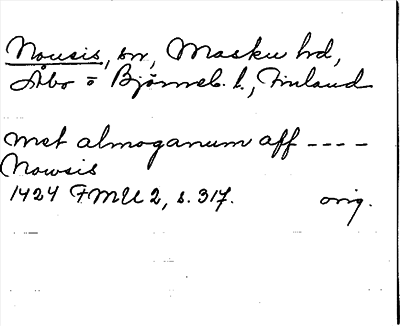 Nousis, sn, Masku hd,
Åbo o Björneb. l., Finland
met almoganum aff ----
Nowsis
1424 FMU 2, s. 317. orig.